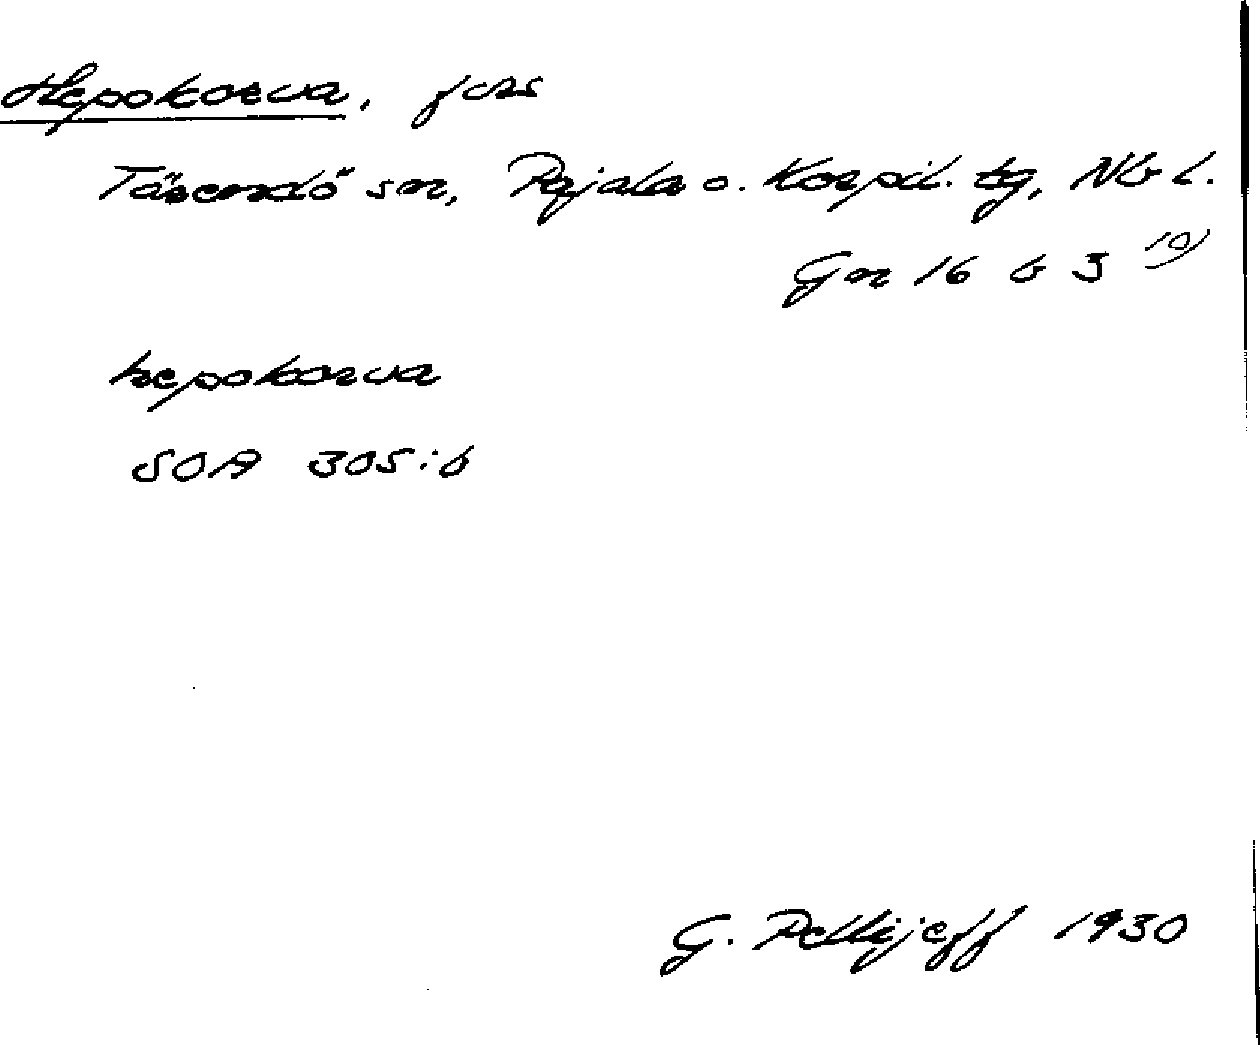 Hepokorva, fors
Tärendö sn, Pajala o. Korpil. tg, Nb l.
Gr 16 b 3 10)
hepokorva
SOA 305:6
G. Pellijeff 1930